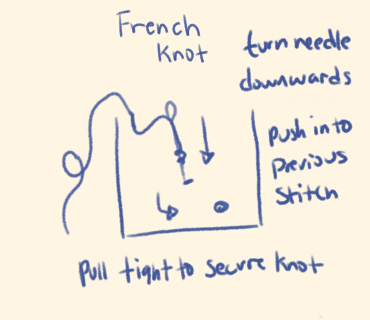 French
Knot
turn needle
downwards
push into
previous
stitch
Pull tight to secure knot